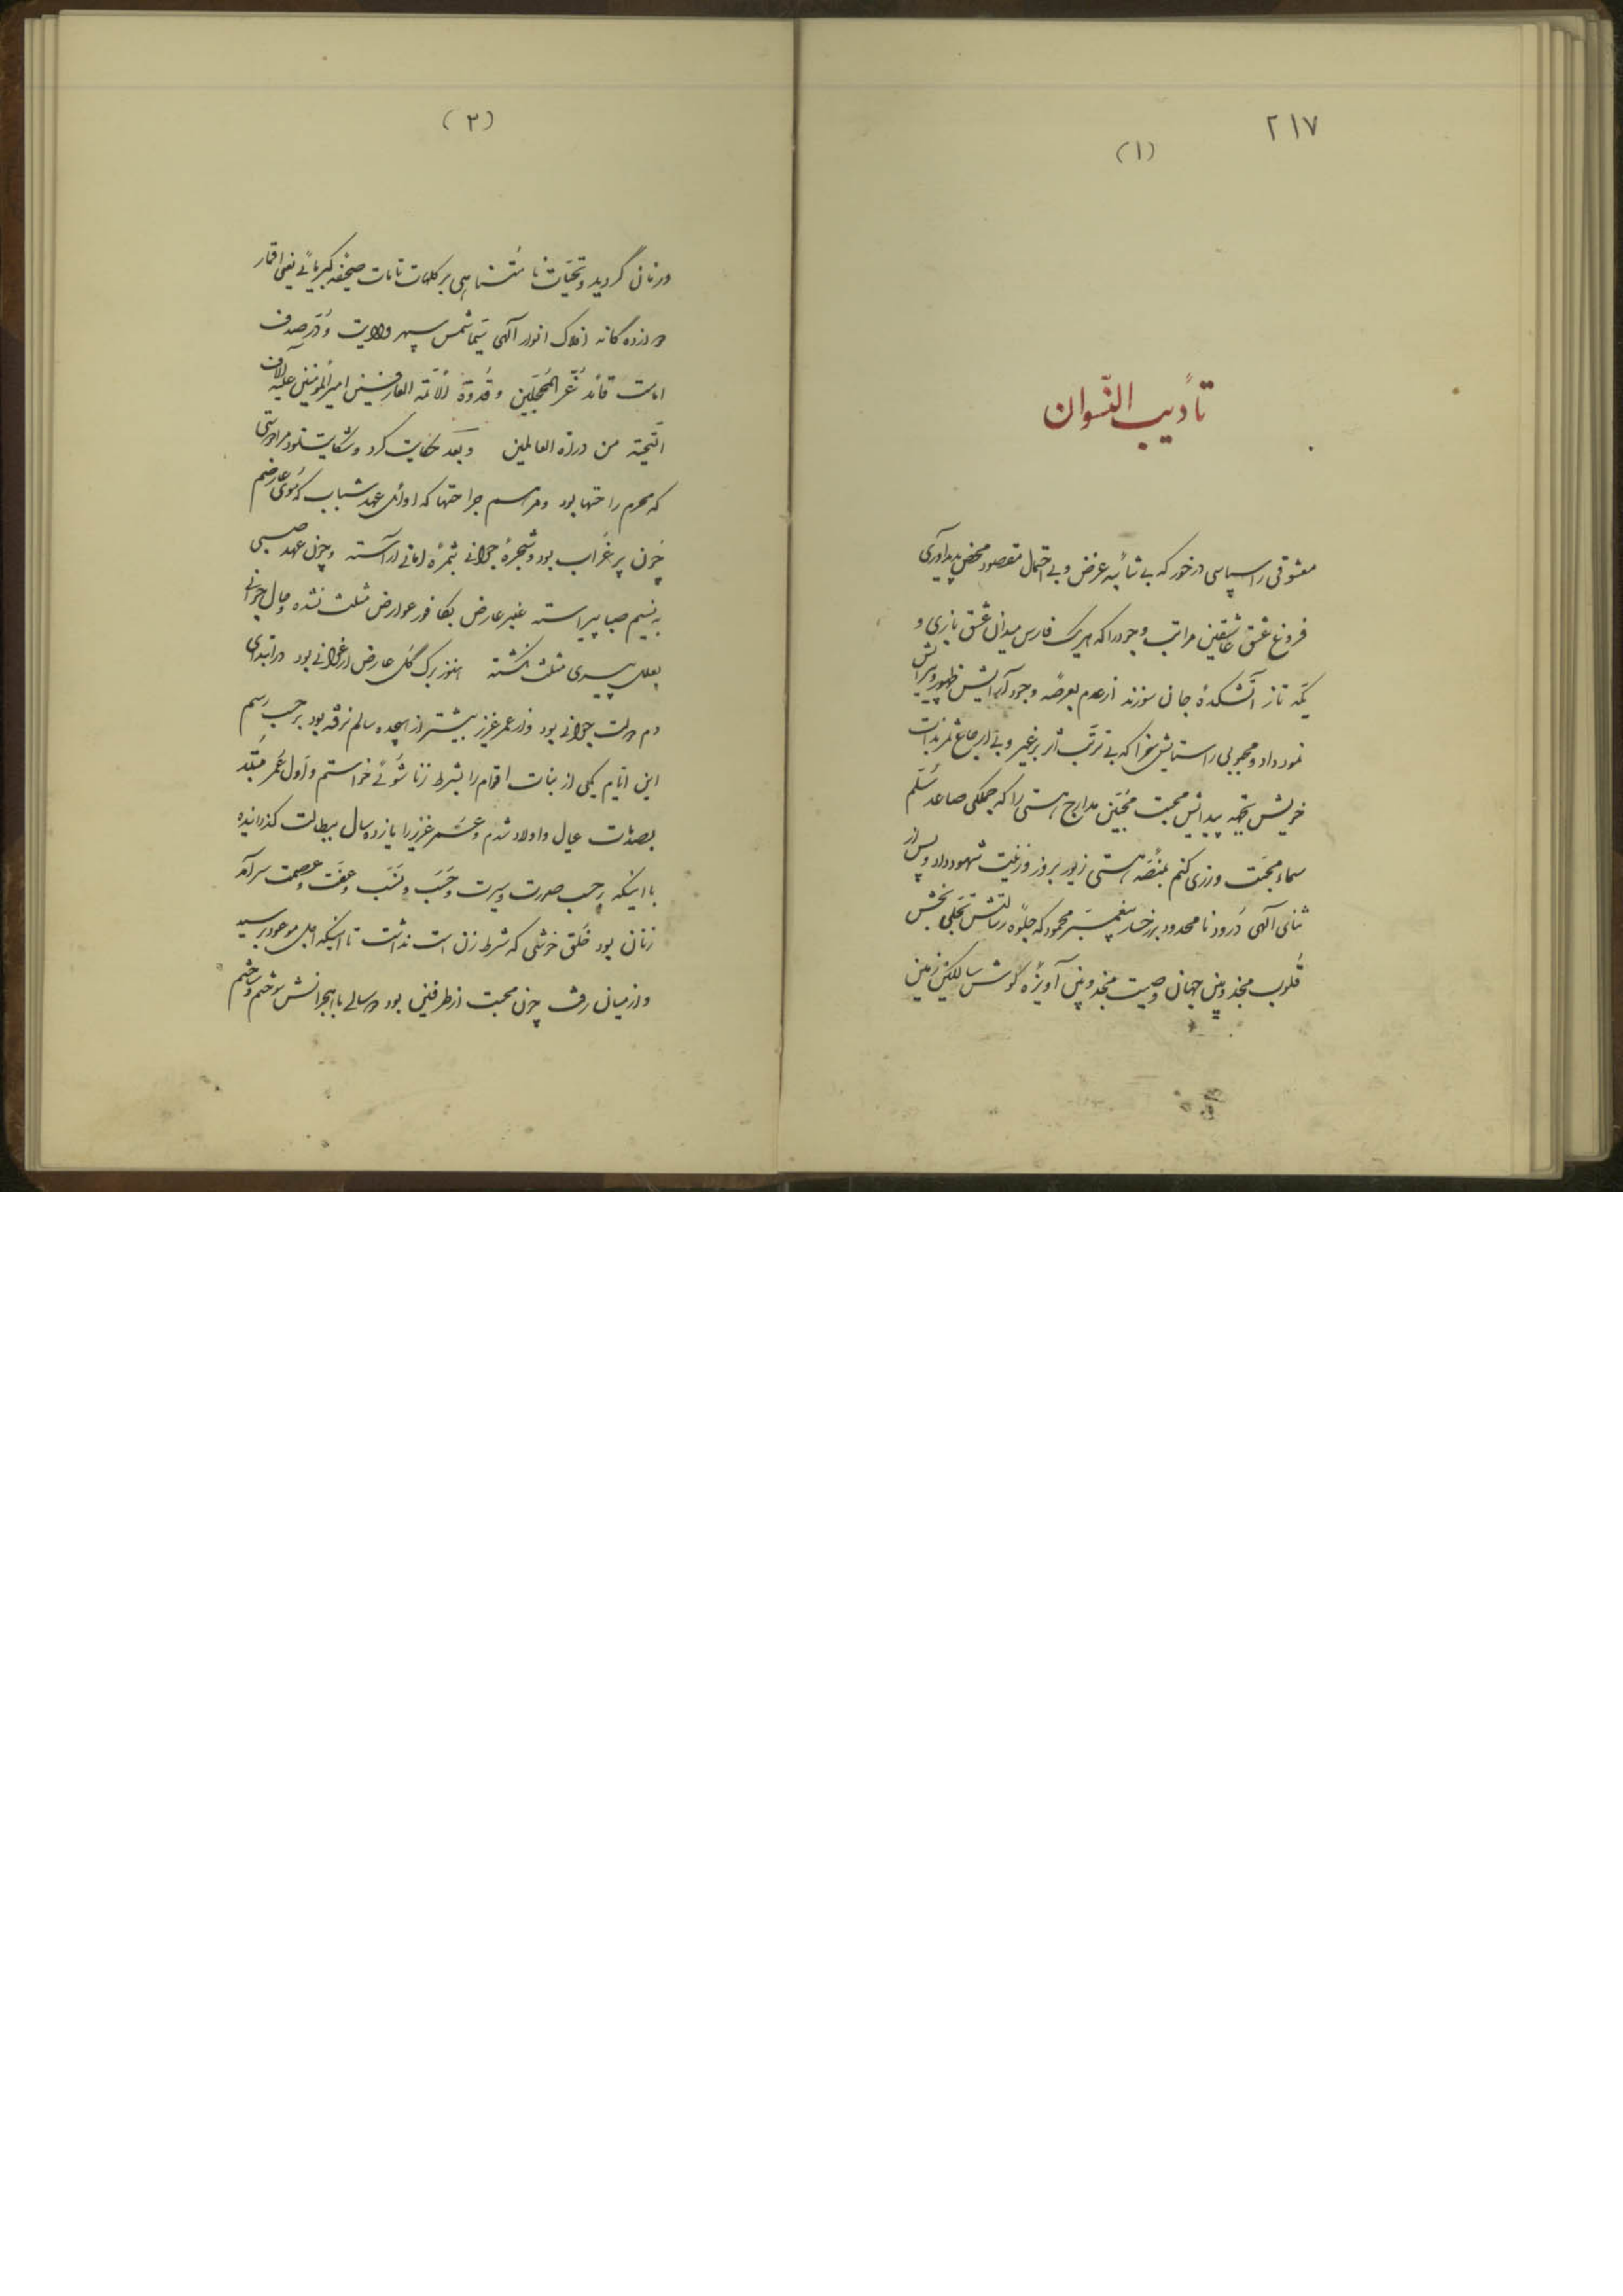 ۲۱۷
(۱)
تأدیب النّسوان
معشوقی را سپاسی درخور که بی شائبه غرض و بی احتمال مقصود محض پدیدآوری
فروغ عشق عاشقین مراتب وجود را که هریک فارس میدان عشق بازی و
یکه تاز آتشکدهٔ جان سوزند از عدم بعرصه وجود آرایش ظهور و پیرایش
نمود داد و محبوبی را ستایش سزا که بی ترتّب اثر بر غیر و بی ارجاع ثمر بذات
خویش پیدایش محبت مُحبّین مدارج هستی را که جملگی صاعد سُلّم
سماء محبّت ورزی کنم بمنصّه هستی زیور بروز و زینت شهود داد و پس از
ثنای آلهی دُرود نامحدود بر پیغمبر محمود که جلوه رسالتش تجلّی بخش
قُلوب مجذوبین جهان و صیت آویزه گوش سالکین زمین
(۲)
و زمان گردید و تحیّات نامُتناهی بر کلمات تامات صحیفه کبریائی یعنی اقمار
دوازده گانه افلاک انوار آلهی سیّما شمس سپهر ولایت و دُرّ صدف
امامت قائد غُرّ المُحجّلین و قُدوَة الأئمّه العارفین امیرالمؤمنین علیه آلاف
التّحیّة من درازه العالمین و بعد حکایت کرد و شکایت نمود مرا دوستی
که محرم راحتها بود و مرهم جراحتها که اوائل عهد شباب که مُوی عارضم
چُون پر غُراب بود و شجرهٔ جوانی بثمرهٔ امانی آراسته و چون عهد صبی
به نسیم صبا پیراسته عنبر عارض بکافور عوارض مثلث نشده و حال جوانی
بعلل پیری مثلث نگشته هنوز برگ گل عارض ارغوانی بود در ابتدای
دم دولت جوانی بود و از عمر عزیز بیشتر از هیجده سالم نرفته بود بر حسب رسم
این ایّام یکی از بنات اقوام را بشرط زناشوئی خواستم و اوّل عُمر مبتلا
بصدمات عیال و اولاد شدم و عُمر عزیز را یازده سال ببطالت گذرانیده
با اینکه بر حسب صورت و سیرت و حَسَب و نَسَب و عفّت و عصمت سرآمد
زنان بود خُلق خوشی که شرط زن است نداشت تا اینکه اجل موعود برسید
و از میان رفت چون محبت از طرفین بود دو سالی با هجرانش سوختم و چشم